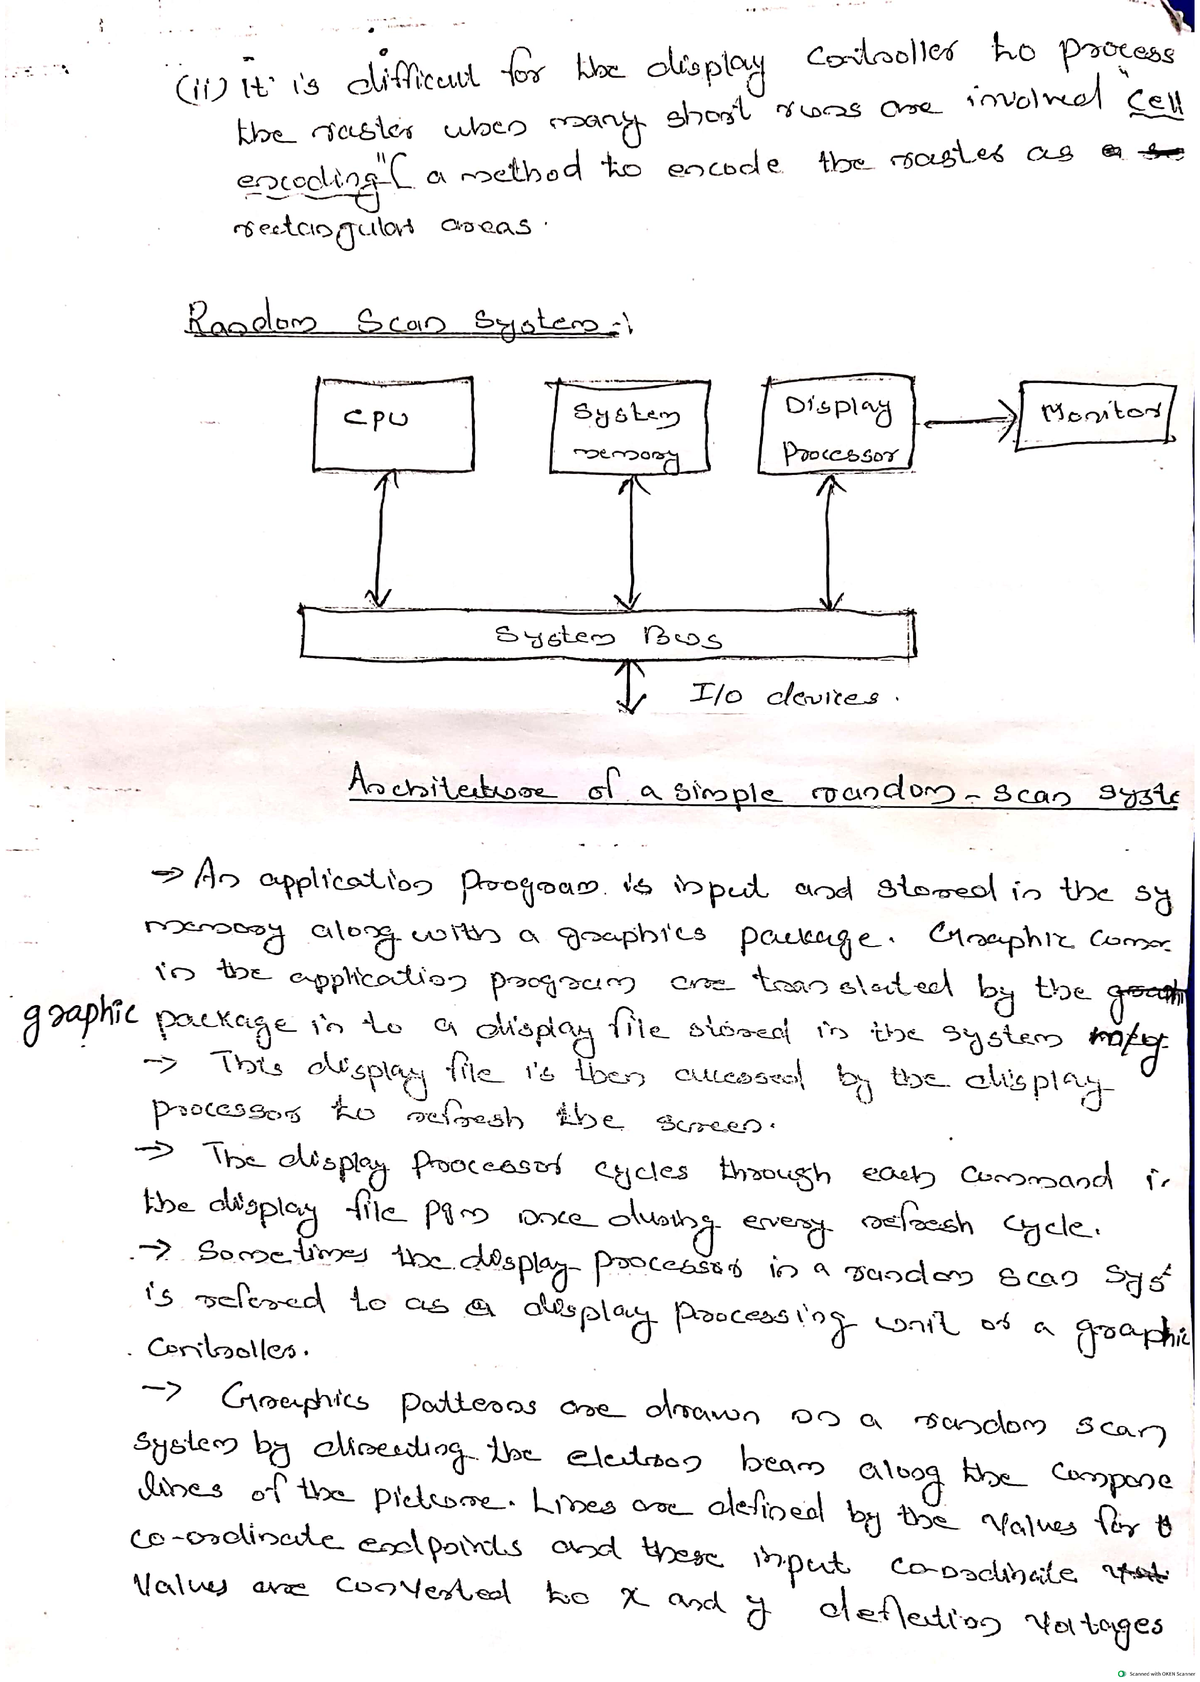 (ii) It is difficult for the display controller to process
the raster when many short runs are involved "Cell
encoding" ( a method to encode the raster as
rectangular areas.
Random Scan System :-
CPU
System
memory
Display
Processor
Monitor
System Bus
I/O devices.
Architecture of a simple random-scan syste
→ An application program is input and stored in the sy
memory along with a graphics package. Graphic comm
in the application program are translated by the
graphic package in to a display file stored in the system
→ This display file is then accessed by the display
processor to refresh the screen.
→ The display processor cycles through each command in
the display file pgm once during every refresh cycle.
→ Sometimes the display processor in a random scan sys
is refered to as a display processing unit or a graphic
controller.
→ Graphics patterns are drawn on a random scan
system by directing the electron beam along the compone
lines of the picture. Lines are defined by the values for
co-ordinate endpoints and these input co-ordinate
values are converted to x and y deflection voltages
Scanned with OKEN Scanner